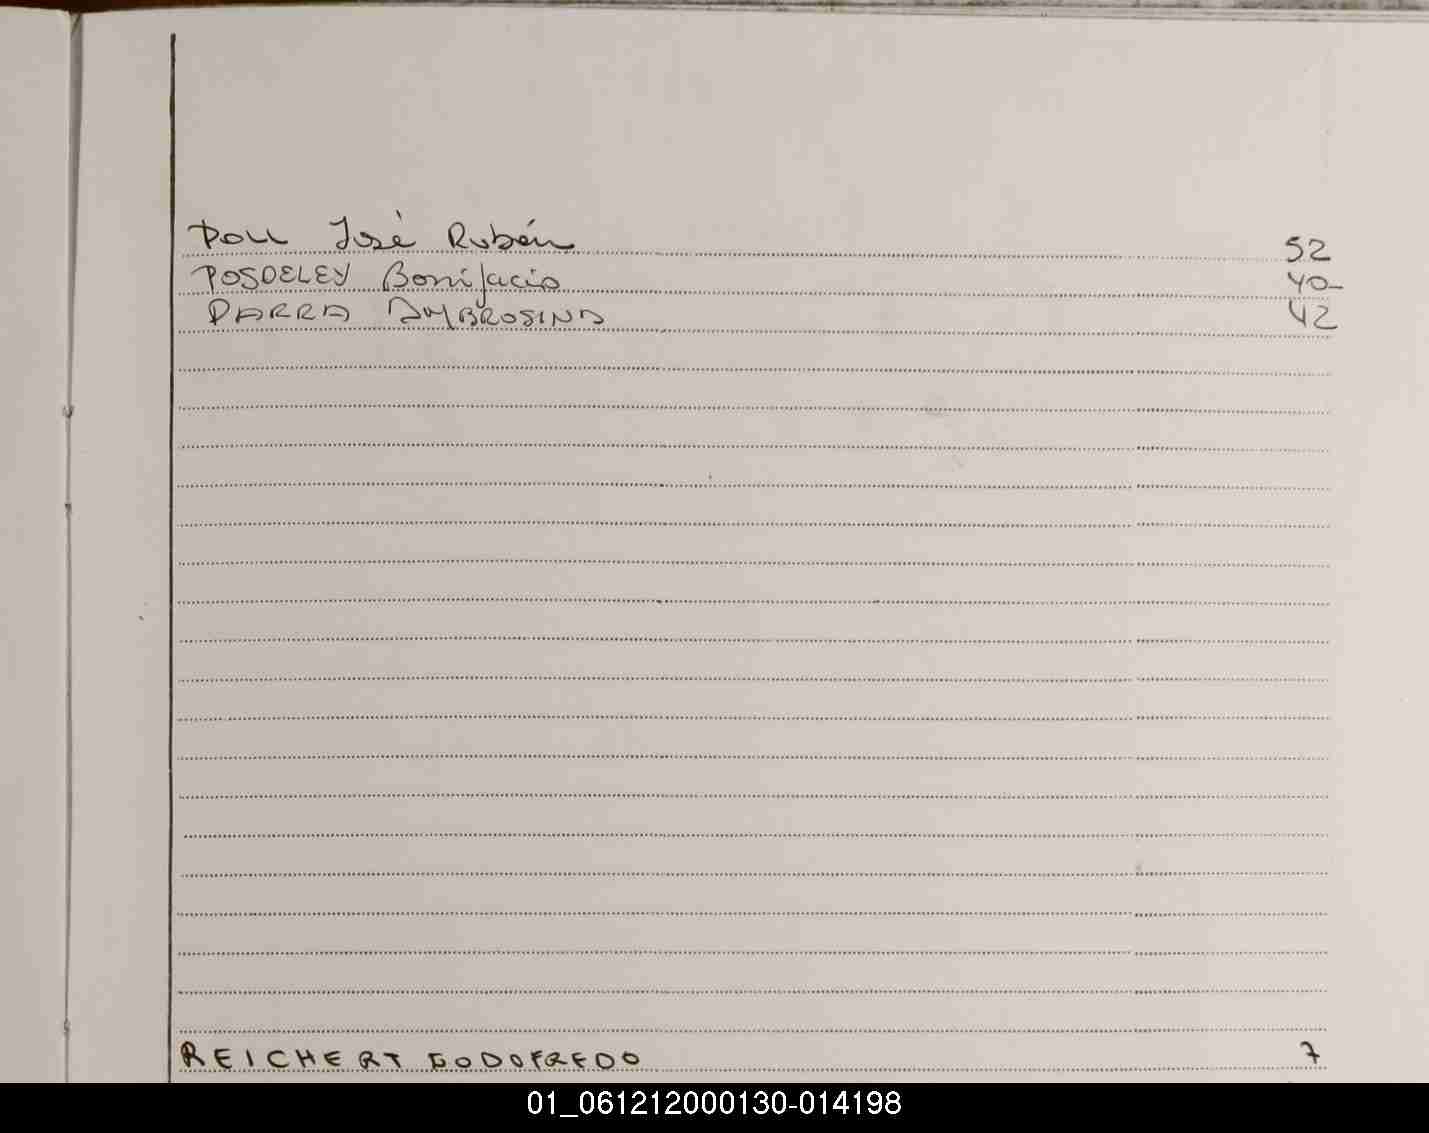 Poll José Rubén 52
POSDELEY Bonifacio 40-
PARRA AMBROSINA 42
REICHERT GODOFREDO 7
01_061212000130-014198